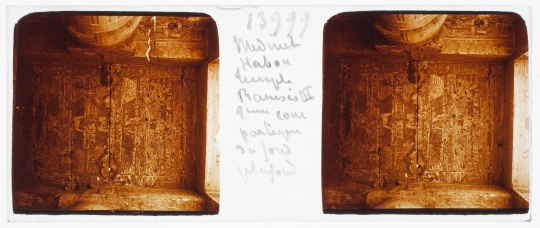 13999
Medinet
Habou
temple
Ramsès III
2me cour
portique
du fond
plafond